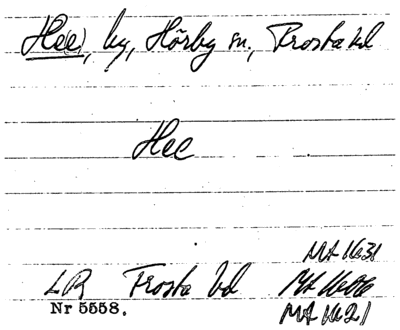 Hee(l), by, Hörby sn., Frosta hd
Hee
MA 1631
LR Frosta hd MA 1606
Nr 5558. MA 1621